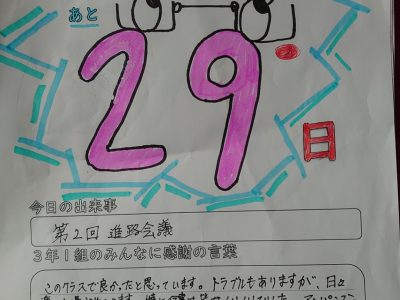 あと
29
日
今日の出来事
第2回 進路会議
3年1組のみんなに感謝の言葉
このクラスで良かったと思っています。トラブルもありますが、日々